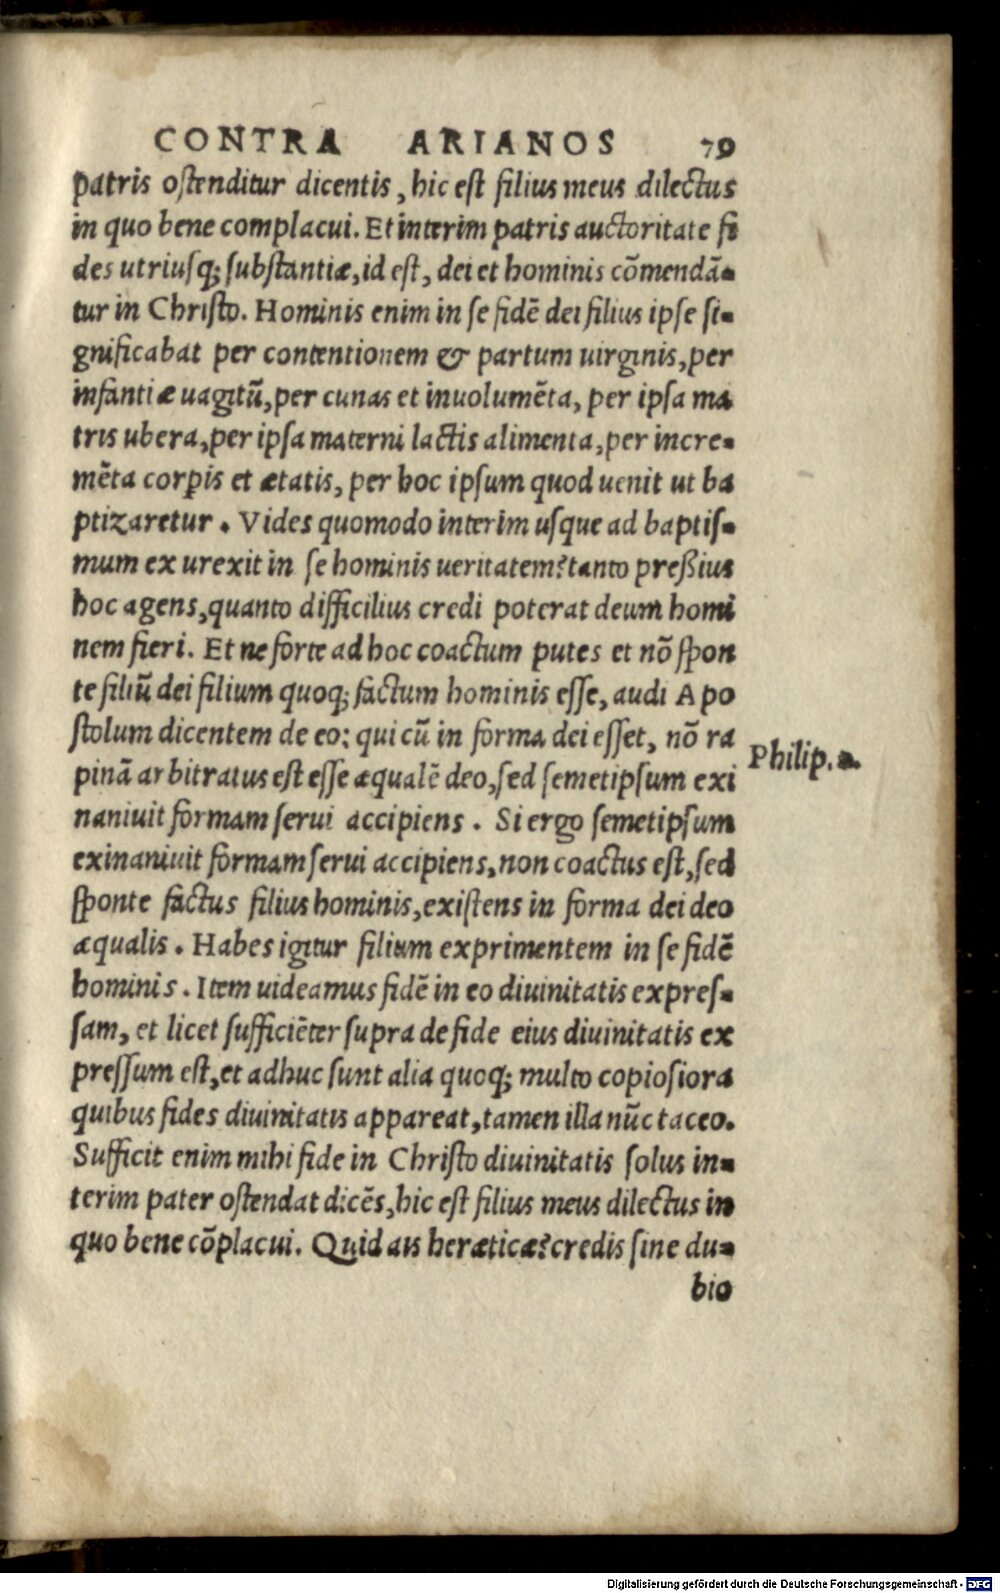 CONTRA ARIANOS 79
patris ostenditur dicentis, hic est filius meus dilectus
in quo bene complacui. Et interim patris auctoritate fi
des utriusq; substantiæ, id est, dei et hominis cōmendā-
tur in Christo. Hominis enim in se fidē dei filius ipse si-
gnificabat per contentionem & partum uirginis, per
infantiæ uagitū, per cunas et inuolumēta, per ipsa ma
tris ubera, per ipsa materni lactis alimenta, per incre-
mēta corꝑis et ætatis, per hoc ipsum quod uenit ut ba
ptizaretur. Vides quomodo interim usque ad baptis-
mum ex urexit in se hominis ueritatem? tanto preßius
hoc agens, quanto difficilius credi poterat deum homi
nem fieri. Et ne forte ad hoc coactum putes et nō spon
te filiū dei filium quoq; factum hominis esse, audi Apo
stolum dicentem de eo: qui cū in forma dei esset, nō ra
Philip. a.
pinā arbitratus est esse æqualē deo, sed semetipsum exi
naniuit formam serui accipiens. Si ergo semetipsum
exinaniuit formam serui accipiens, non coactus est, sed
sponte factus filius hominis, existens in forma dei deo
æqualis. Habes igitur filium exprimentem in se fidē
hominis. Item uideamus fidē in eo diuinitatis expres-
sam, et licet sufficiēter supra de fide eius diuinitatis ex
pressum est, et adhuc sunt alia quoq; multo copiosiora
quibus fides diuinitatis appareat, tamen illa nūc taceo.
Sufficit enim mihi fide in Christo diuinitatis solus in-
terim pater ostendat dicēs, hic est filius meus dilectus in
quo bene cōplacui. Quid ais hæreticæ? credis sine du-
bio
Digitalisierung gefördert durch die Deutsche Forschungsgemeinschaft - DFG